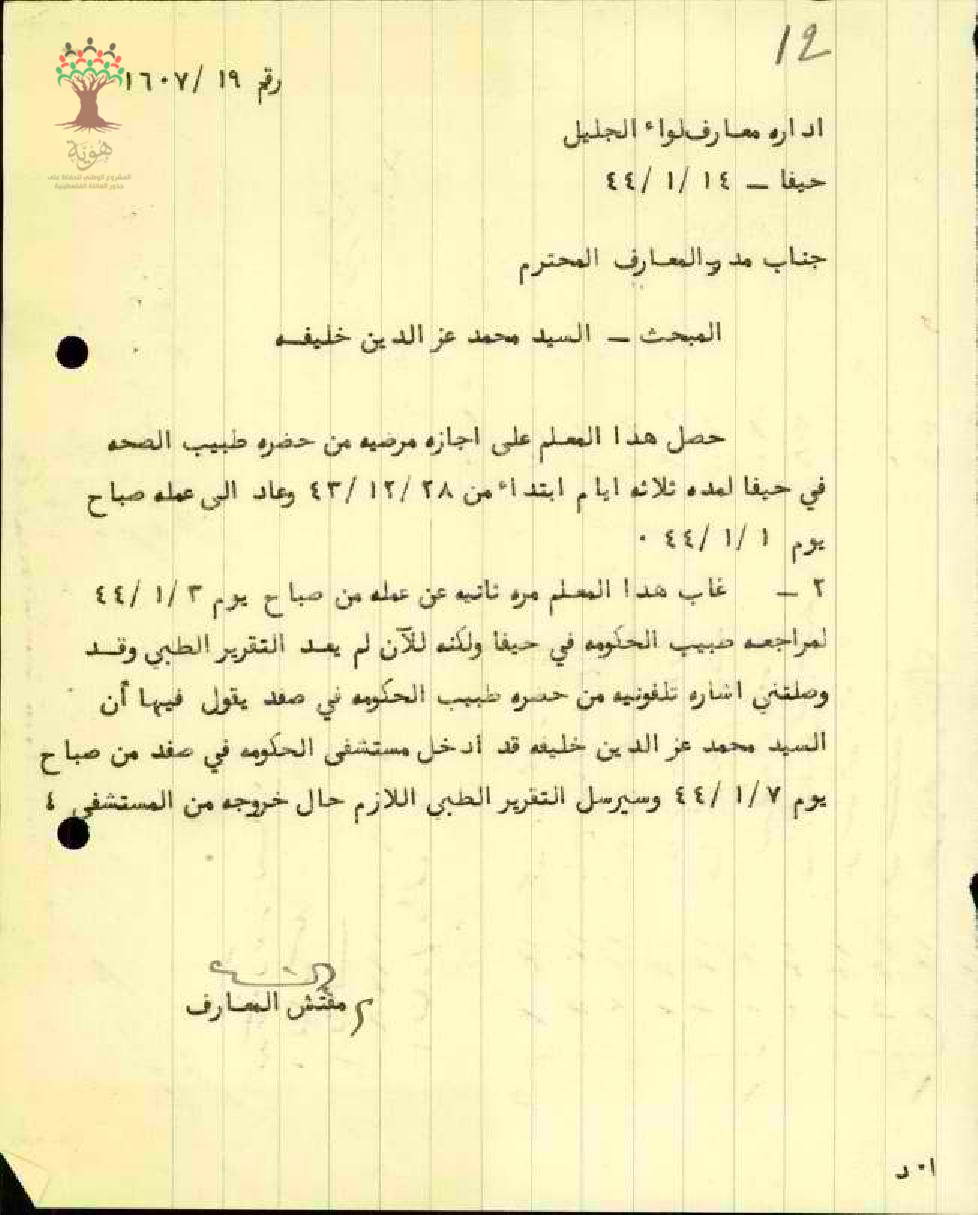 12
رقم ١٩/ ١٦٠٧
هوية
المشروع الوطني للحفاظ على
جذور العائلة الفلسطينية
اداره معارف لواء الجليل
حيفا – ١٤ /١ /٤٤
جناب مدير المعارف المحترم
المبحث – السيد محمد عز الدين خليفه
حصل هذا المعلم على اجازه مرضيه من حضره طبيب الصحه
في حيفا لمده ثلاثه ايام ابتداء من ٢٨ /١٢ /٤٣ وعاد الى عمله صباح
يوم ١ /١ /٤٤ ٠
٢ – غاب هذا المعلم مره ثانيه عن عمله من صباح يوم ٣ /١ /٤٤
لمراجعه طبيب الحكومه في حيفا ولكنه للآن لم يعد التقرير الطبي وقد
وصلتني اشاره تلفونيه من حضره طبيب الحكومه في صفد يقول فيها أن
السيد محمد عز الدين خليفه قد أدخل مستشفى الحكومه في صفد من صباح
يوم ٧ /١ /٤٤ وسيرسل التقرير الطبي اللازم حال خروجه من المستشفى ٤
مفتش المعارف
ا٠د